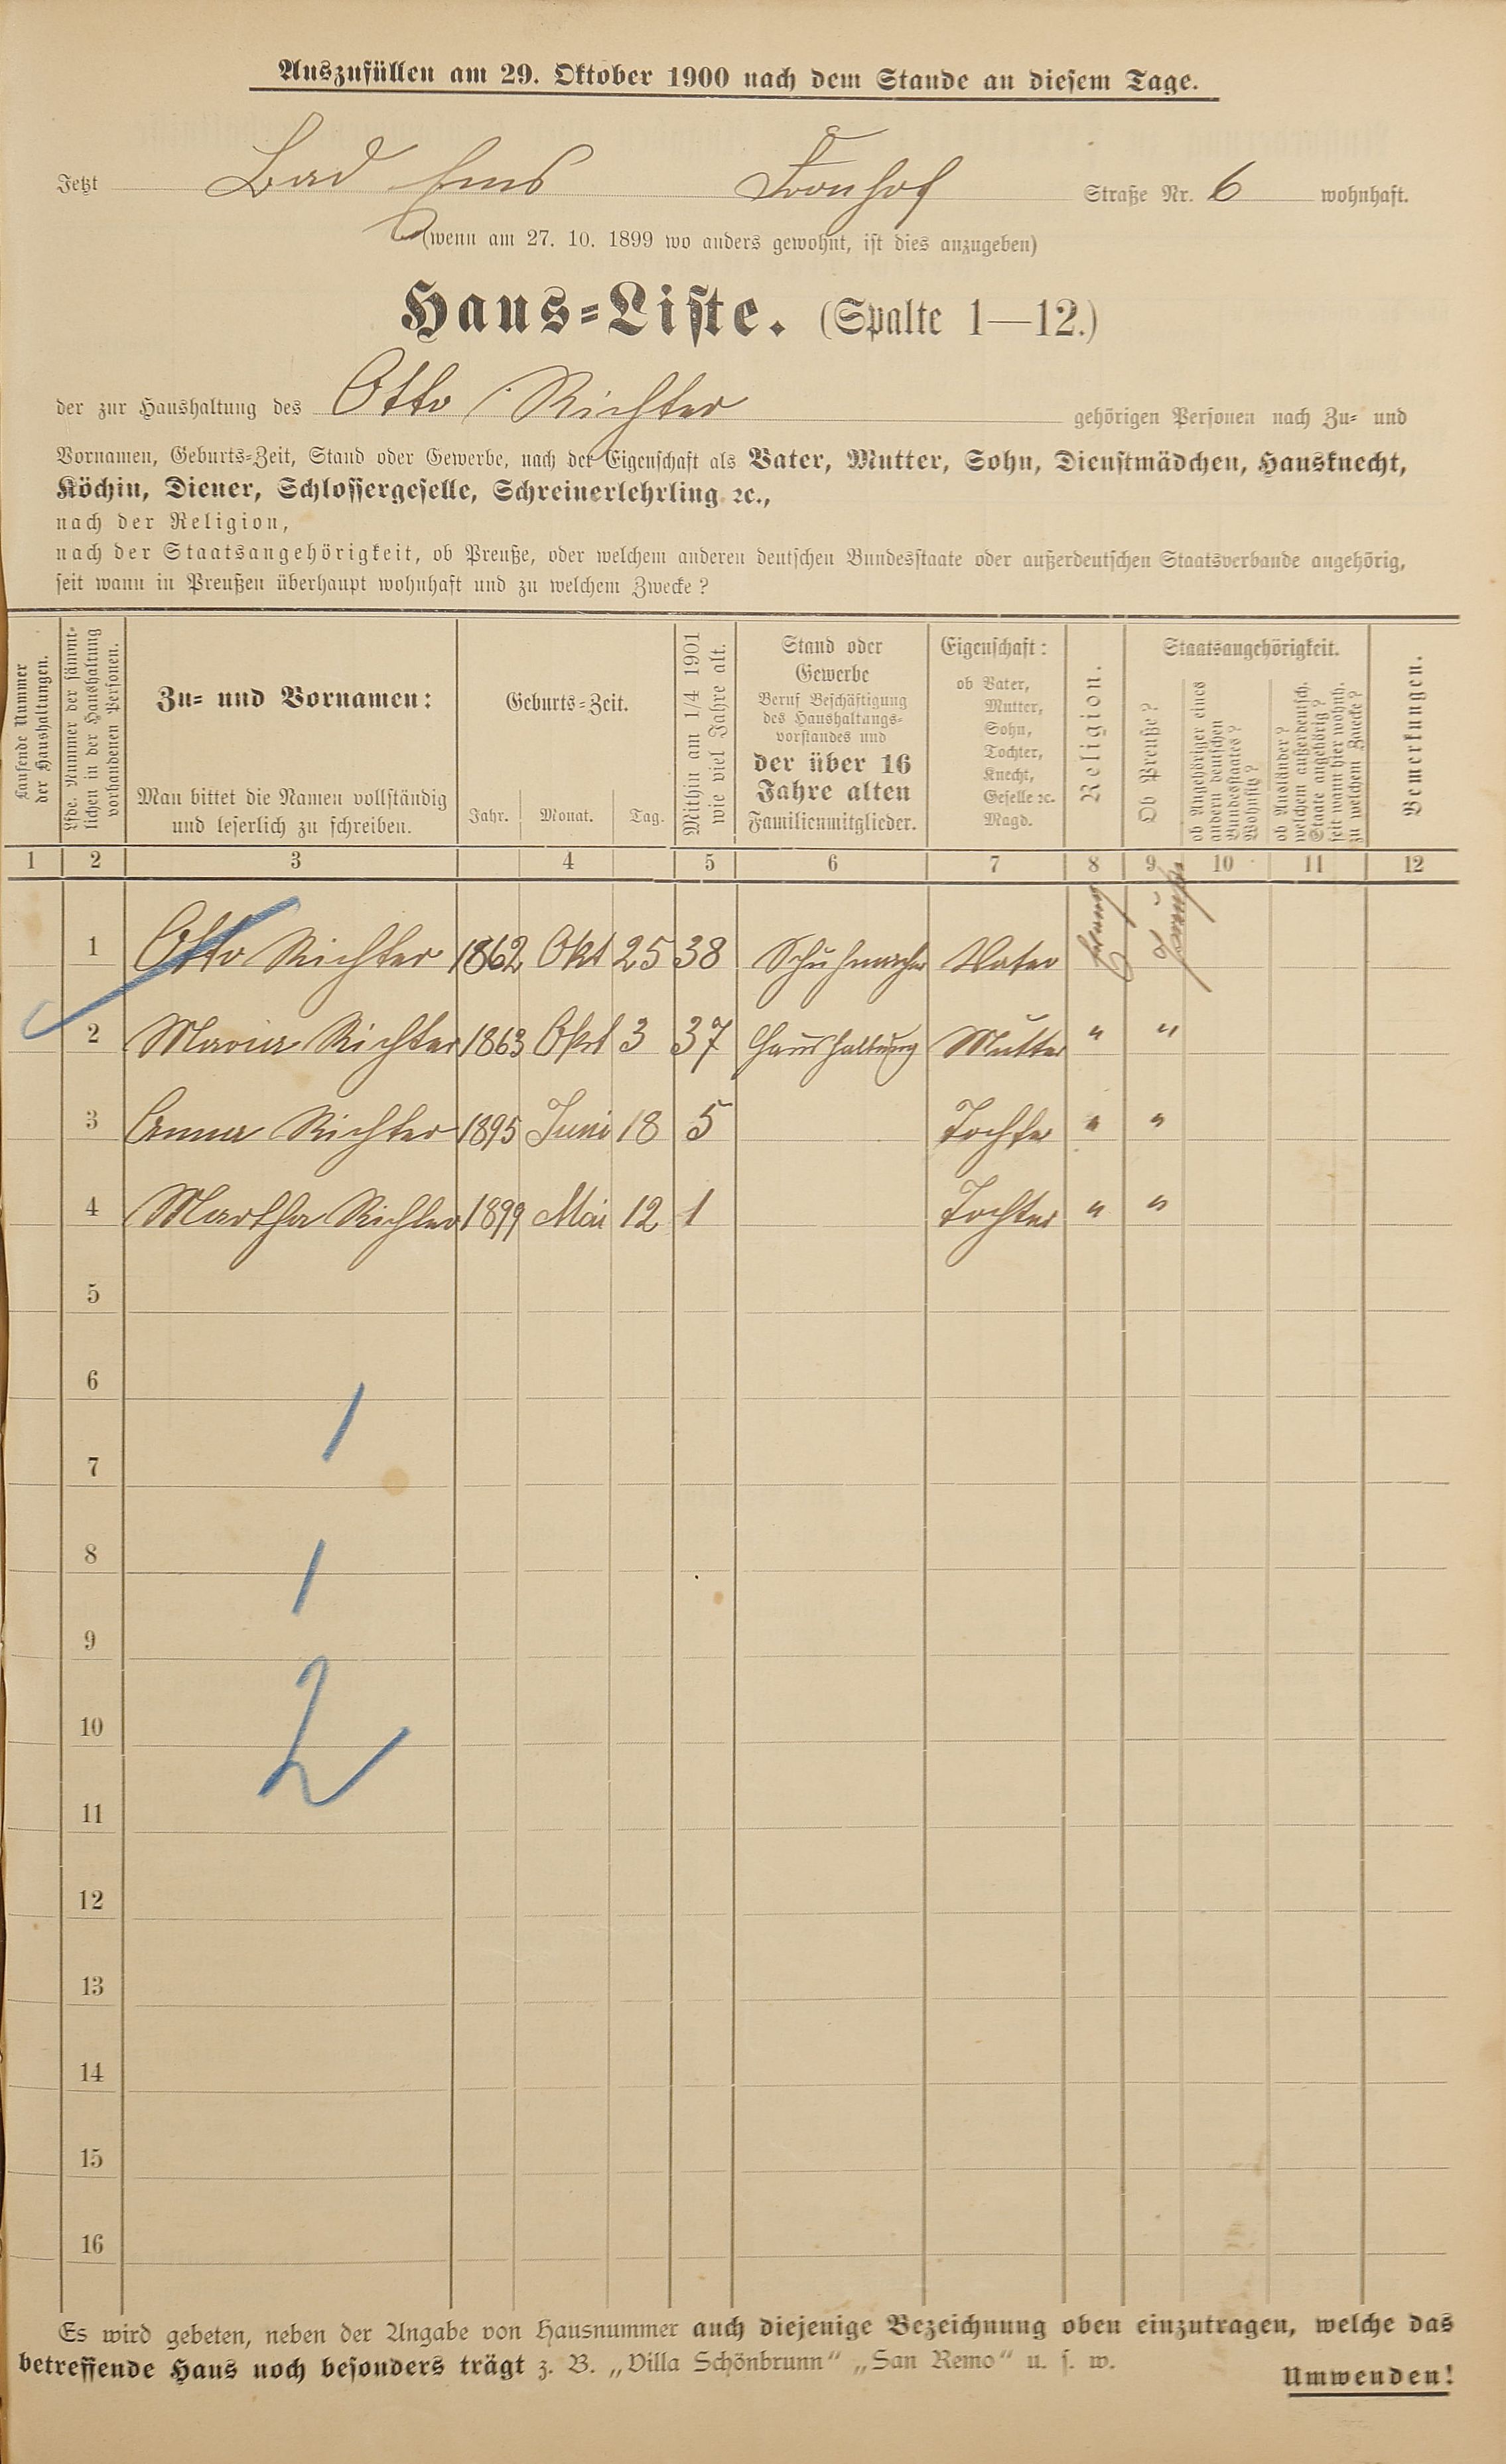 Auszufüllen am 29. Oktober 1900 nach dem Stande an diesem Tage.
Jetzt Bad Ems Fronhof Straße Nr. 6 wohnhaft.
(wenn am 27. 10. 1899 wo anders gewohnt, ist dies anzugeben)
Haus-Liste. (Spalte 1—12.)
der zur Haushaltung des Otto Richter gehörigen Personen nach Zu- und
Vornamen, Geburts-Zeit, Stand oder Gewerbe, nach der Eigenschaft als Vater, Mutter, Sohn, Dienstmädchen, Hausknecht,
Köchin, Diener, Schlossergeselle, Schreinerlehrling ꝛc.,
nach der Religion,
nach der Staatsangehörigkeit, ob Preuße, oder welchem anderen deutschen Bundesstaate oder außerdeutschen Staatsverbande angehörig,
seit wann in Preußen überhaupt wohnhaft und zu welchem Zwecke?
Laufende Nummer
der Haushaltungen.
Lfde. Nummer der sämmt-
lichen in der Haushaltung
vorhandenen Personen.
Zu- und Vornamen:
Man bittet die Namen vollständig
und leserlich zu schreiben.
Geburts-Zeit.
Jahr. Monat. Tag.
Mithin am 1/4 1901
wie viel Jahre alt.
Stand oder
Gewerbe
Beruf Beschäftigung
des Haushaltungs-
vorstandes und
der über 16
Jahre alten
Familienmitglieder.
Eigenschaft:
ob Vater,
Mutter,
Sohn,
Tochter,
Knecht,
Geselle ꝛc.
Magd.
Religion.
Staatsangehörigkeit.
Ob Preuße?
ob Angehöriger eines
andern deutschen
Bundesstaates?
Wohnsitz?
ob Ausländer?
welchem außerdeutsch.
Staate angehörig?
seit wann hier wohnh.
zu welchem Zwecke?
Bemerkungen.
1 2 3 4 5 6 7 8 9 10 11 12
1 Otto Richter 1862 Okt 25 38 Schuhmacher Vater evang Preuße
2 Maria Richter 1863 Okt 3 37 Haushaltung Mutter " "
3 Anna Richter 1895 Juni 18 5 Tochter " "
4 Martha Richter 1899 Mai 12 1 Tochter " "
5
6
1
7
8
1
9
10
2
11
12
13
14
15
16
Es wird gebeten, neben der Angabe von Hausnummer auch diejenige Bezeichnung oben einzutragen, welche das
betreffende Haus noch besonders trägt z. B. „Villa Schönbrunn“ „San Remo“ u. s. w.
Umwenden!